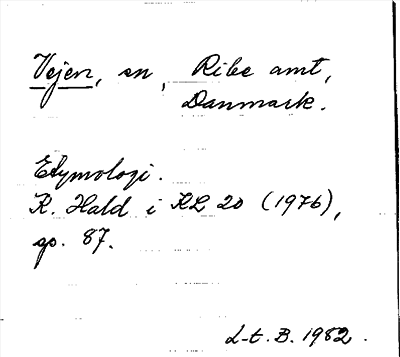 Vejen, sn, Ribe amt,
Danmark.
Etymologi.
K. Hald i KL 20 (1976),
sp. 87.
L-t. B. 1982.